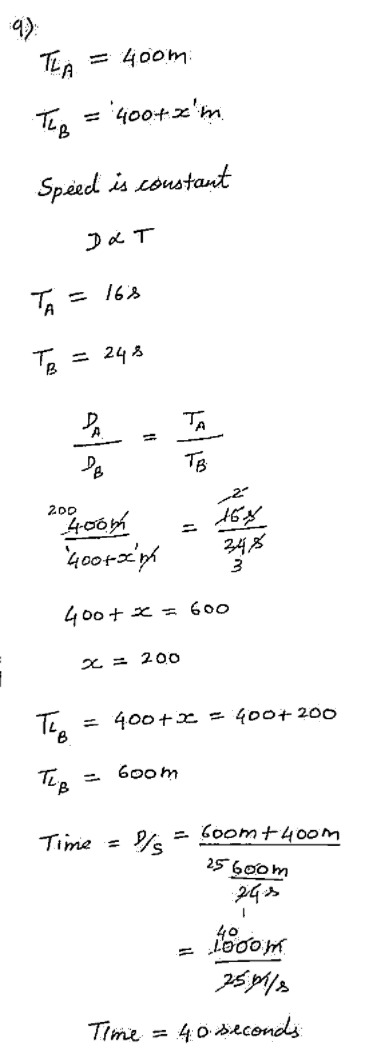 9)
TL_A = 400m
TL_B = '400+x'm
Speed is constant
D ∝ T
T_A = 16s
T_B = 24s
D_A / D_B = T_A / T_B
200 2
400m / '400+x'm = 16s / 24s
3
400 + x = 600
x = 200
TL_B = 400+x = 400+200
TL_B = 600m
Time = D/S = 600m+400m
25 600m
24s
1
40
= 1000m
25m/s
Time = 40 seconds